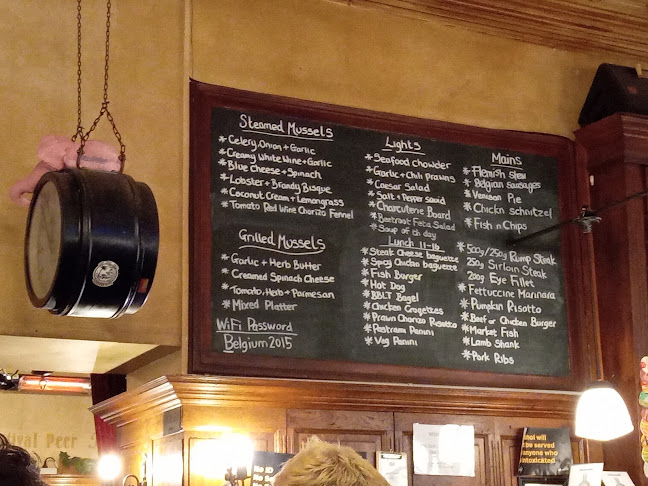 Steamed Mussels
* Celery, Onion + Garlic
* Creamy White Wine + Garlic
* Blue Cheese + Spinach
* Lobster + Brandy Bisque
* Coconut Cream + Lemongrass
* Tomato Red Wine Chorizo Fennel
Grilled Mussels
* Garlic + Herb Butter
* Creamed Spinach Cheese
* Tomato, Herb + Parmesan
* Mixed Platter
WiFi Password
Belgium2015
Lights
* Seafood chowder
* Garlic + Chili prawns
* Caesar Salad
* Salt + Pepper squid
* Charcuterie Board
* Beetroot Feta Salad
* Soup of th day
Lunch 11-16
* Steak Cheese baguette
* Spicy Chicken baguette
* Fish Burger
* Hot Dog
* BBLT Bagel
* Chicken Croqettes
* Prawn Chorizo Risotto
* Pastrami Panini
* Veg Panini
Mains
* Flemish stew
* Belgian sausages
* Venison Pie
* Chickn schnitzel
* Fish n Chips
* 500g/250g Rump Steak
250g Sirloin Steak
200g Eye Fillet
* Fettuccine Marinara
* Pumpkin Risotto
* Beef or Chicken Burger
* Market Fish
* Lamb Shank
* Pork Ribs
tival Peer
No ID
will
be served
anyone who
intoxicated